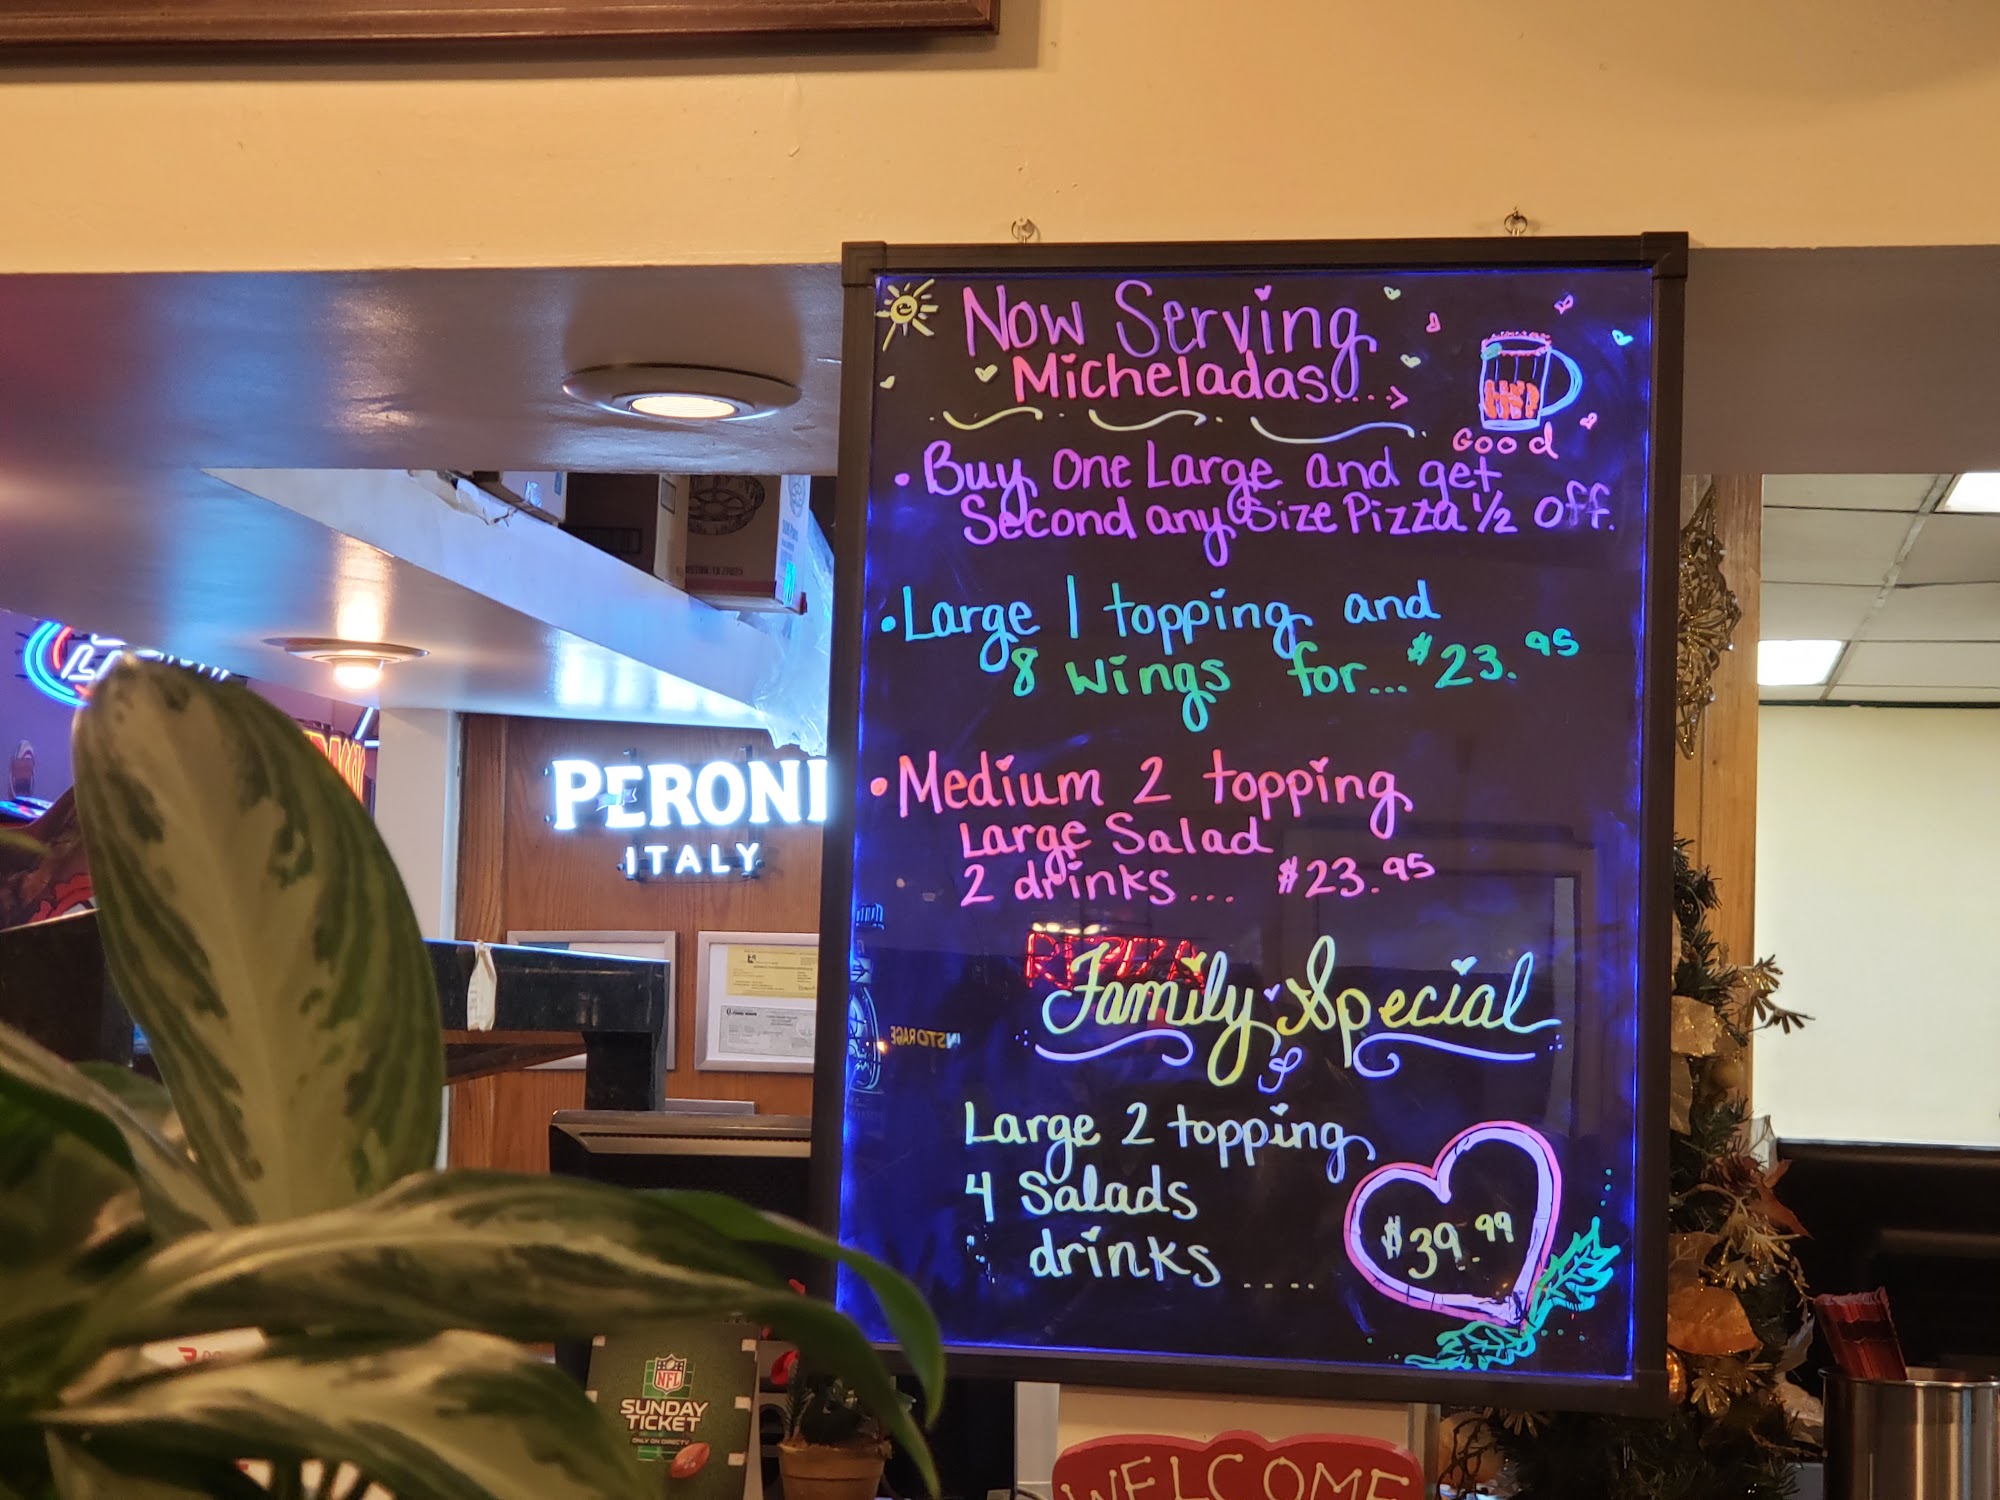 Now Serving
Micheladas...
Good
• Buy One Large and get
Second any Size Pizza 1/2 Off.
• Large 1 topping and
8 Wings for... $23.95
• Medium 2 topping
Large Salad
2 drinks... $23.95
Family Special
Large 2 topping
4 Salads
drinks ....
$39.99
PERONI
ITALY
INSTORAGE
NFL
SUNDAY
TICKET
ONLY ON DIRECTV
WELCOME